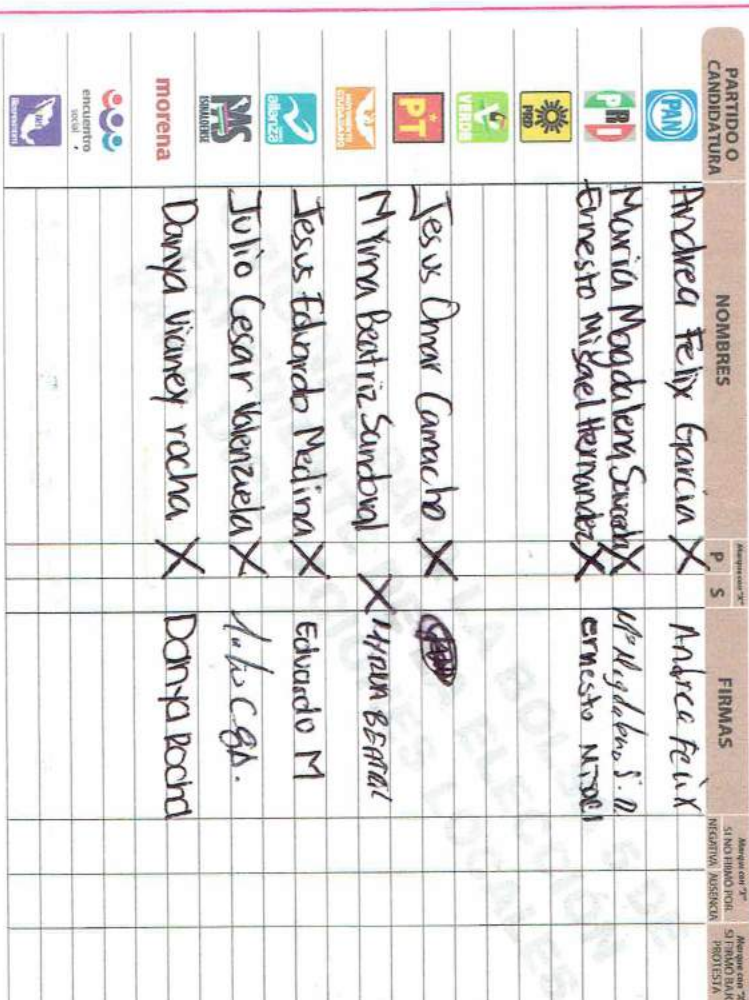 PARTIDO O
CANDIDATURA
NOMBRES
Marque con "X"
P S
FIRMAS
Marque con "X"
SI NO FIRMÓ POR
NEGATIVA AUSENCIA
SI FIRMÓ BAJO
PROTESTA
PAN
Andrea Felix Garcia X Andrea Felix
PRI
Maria Magdalena X
Ernesto Misael Hernandez X ernesto
PRD
VERDE
PT
Jesus Omar Camacho X
MOVIMIENTO
CIUDADANO
Myrna Beatriz Sandoval X MYRNA BEATRIZ
alianza
Jesus Eduardo Medina X Eduardo M
PAS
SINALOENSE
Julio Cesar Valenzuela X Julio C
morena
Danya Vianey rocha X Danya Rocha
encuentro
social
BOLSA 5 DE
ELECCIÓN
LOCALES